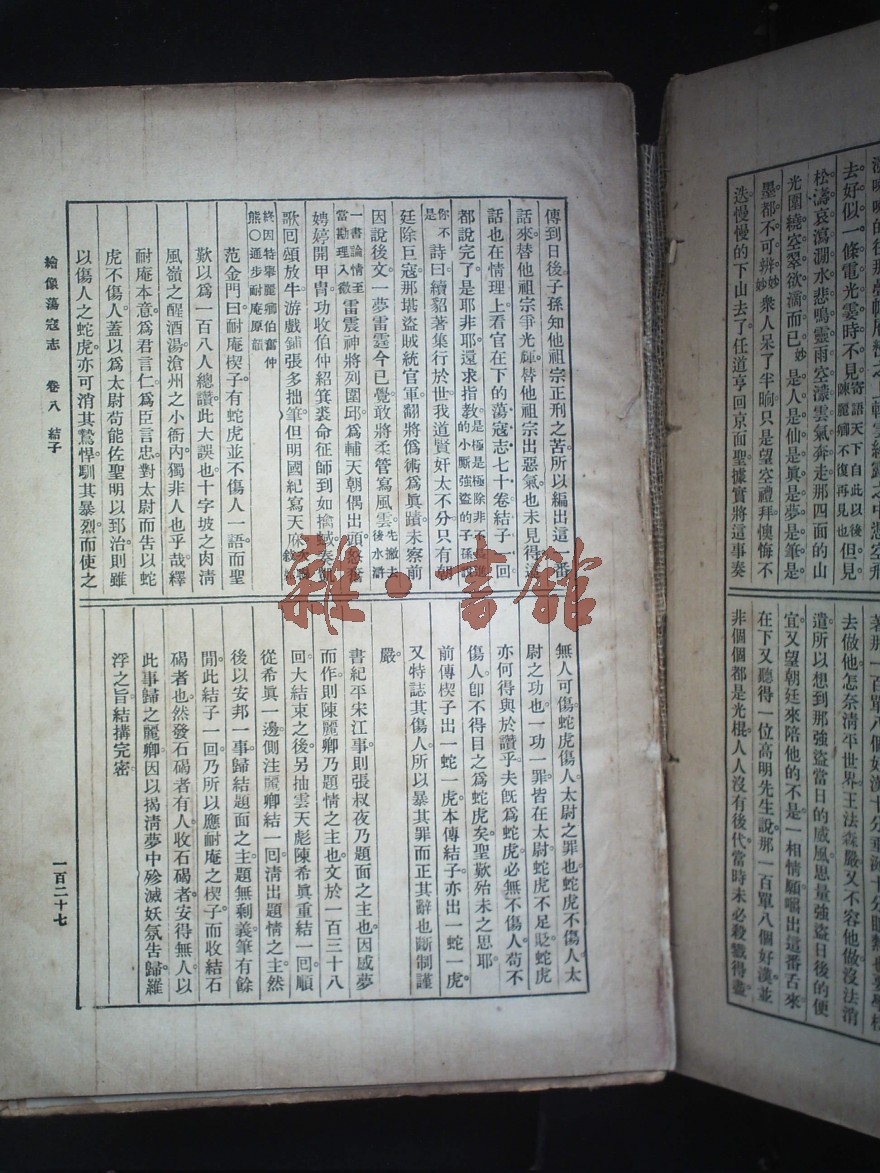 去好似一條電光霎時不見寄語天下自此以後陳麗卿不復再見也但見
松濤哀瀉澗水悲鳴靈雨空濛雲氣奔走那四面的山
光圍繞空翠欲滴而已妙是人是仙是眞是夢是筆是
墨都不可辨妙衆人呆了半晌只是望空禮拜懊悔不
迭慢慢的下山去了任道亨回京面聖據實將這事奏
去做他怎奈清平世界王法森嚴又不容他做沒法消
遣所以想到那強盜當日的威風思量強盜日後的便
宜又望朝廷來陪他的不是一相情願嚼出這番舌來
在下又聽得一位高明先生說那一百單八個好漢並
非個個都是光棍人人沒有後代當時未必殺戮得盡
傳到日後子孫知他祖宗正刑之苦所以編出這一番
話來替他祖宗爭光輝替他祖宗出惡氣也未見得
話也在情理上看官在下的蕩寇志七十卷結子一回
都說完了是耶非耶還求指教的是極是極除非不小厮強盜的子孫說
你不是詩曰續貂著集行於世我道賢奸太不分只有
廷除巨寇那堪盜賊統官軍翻將僞術爲眞蹟未察前
因說後文一夢雷霆今已覺敢將柔管寫風雲先撇去後水滸
一書論情至當勘理入微雷震神將列圍邱爲輔天朝偶出頭
娉婷開甲冑功收伯仲紹箕裘命征師到如擒
歌回頌放牛游戲鋪張多拙筆但明國紀寫天庥
終因特畢麗卿伯奮仲熊〇通步耐庵原韻
范金門曰耐庵楔子有蛇虎並不傷人一語而聖
歎以爲一百八人總讚此大誤也十字坡之肉淸
風嶺之醒酒湯滄州之小衙內獨非人也乎哉繹
耐庵本意爲君言仁爲臣言忠對太尉而告以蛇
虎不傷人蓋以爲太尉苟能佐聖明以郅治則雖
以傷人之蛇虎亦可消其鷙悍馴其暴烈而使之
無人可傷蛇虎傷人太尉之罪也蛇虎不傷人太
尉之功也一功一罪皆在太尉蛇虎不足貶蛇虎
亦何得與於讚乎夫旣爲蛇虎必無不傷人苟不
傷人卽不得目之爲蛇虎矣聖歎殆未之思耶
前傳楔子出一蛇一虎本傳結子亦出一蛇一虎
又特誌其傷人所以暴其罪而正其辭也斷制謹
嚴
書紀平宋江事則張叔夜乃題面之主也因感夢
而作則陳麗卿乃題情之主也文於一百三十八
回大結束之後另抽雲天彪陳希眞重結一回順
從希眞一邊側注麗卿結一回淸出題情之主然
後以安邦一事歸結題面之主題無剩義筆有餘
閒此結子一回乃所以應耐庵之楔子而收結石
碣者也然發石碣者有人收石碣者安得無人以
此事歸之麗卿因以揭淸夢中殄滅妖氛吿歸羅
浮之旨結搆完密
繪像蕩寇志 卷八 結子
一百二十七
雜·書館